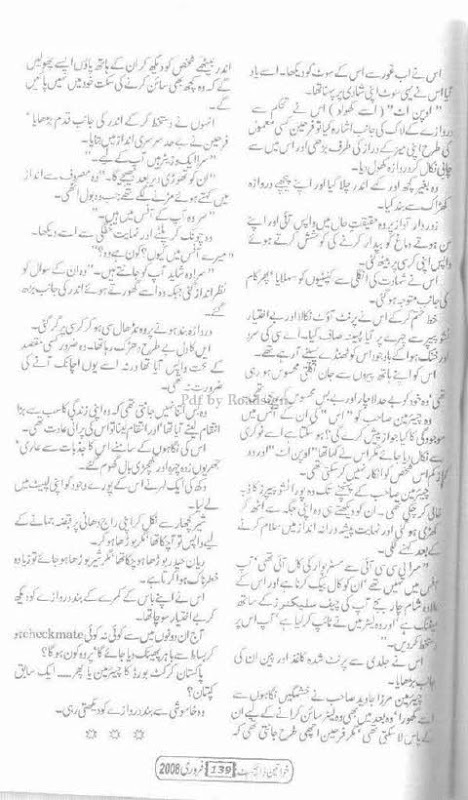 اس نے اب غور سے اس کے سوٹ کو دیکھا۔ اسے یاد
تھا اس نے یہی سوٹ اپنی شادی پر پہنا تھا۔
"اوپن اٹ" (اسے کھولو) اس نے تحکم سے
دروازے کے لاک کی جانب اشارہ کیا تو فرحین کسی معمول
کی طرح اپنی میز کے دراز کی طرف بڑھی اور اس میں سے
چابی نکال کر دروازہ کھول دیا۔
وہ بغیر کچھ اور کہے اندر چلا گیا اور اپنے پیچھے دروازہ
کھڑاک سے بند کیا۔
زور دار آواز پر وہ حقیقت حال میں واپس آئی اور اپنے
سن ہوتے دماغ کو بیدار کرنے کی کوشش کرتے ہوئے
واپس اپنی کرسی پر بیٹھ گئی۔
اس نے شہادت کی انگلی سے کنپٹیوں کو سہلایا پھر کام
کی جانب متوجہ ہو گئی۔
خط ختم کر کے اس نے پرنٹ آؤٹ نکالا اور بے اختیار
ٹشو پیپر سے چہرے پر آیا پسینہ صاف کیا۔ اے سی کی سرد
اور خشک ہوا کے باوجود اس کو ٹھنڈے پسینے آ رہے تھے۔
اس کو اپنے ہاتھ پیروں سے جان نکلتی محسوس ہو رہی
تھی وہ خود کو بے حد لاچار اور بے بس محسوس کر رہی تھی
وہ چیئرمین صاحب کو "اس" کی ان کے آفس میں
موجودگی کا کیا جواز پیش کرے گی؟ ہو سکتا ہے اسے نوکری
سے نکال دیا جائے مگر اس نے کہا تھا "اوپن اٹ" اور وہ
کم از کم اس شخص کو انکار نہیں کر سکتی تھی۔
چیئرمین صاحب کے پہنچنے تک وہ پورا ٹشو پیپرز کا ڈبہ
خالی کر چکی تھی۔ ان کو دیکھتے ہی وہ اپنی جگہ سے اٹھ کر
کھڑی ہو گئی اور نہایت پیشہ ورانہ انداز میں سلام کرنے
کے بعد کہنے لگی۔
"سر! آئی سی سی آئی سے مسٹر کی کال آئی تھی آپ
آفس میں نہیں تھے ان کو کال بیک کرنا ہے اور اس کے
علاوہ شام چار بجے آپ کی چیف سلیکٹرز کے ساتھ
میٹنگ ہے اور وہ لیٹر میں نے ٹائپ کر لیا ہے آپ اس پر
دستخط کر دیں۔"
اس نے جلدی سے پرنٹ شدہ کاغذ اور پین ان کی
جانب بڑھایا۔
چیئرمین مرزا جاوید صاحب نے خشمگیں نگاہوں سے
اسے گھورا وہ بعد میں بھی وہ لیٹر سائن کرانے کے لیے ان
کے پاس لا سکتی تھی مگر فرحین اچھی طرح جانتی تھی کہ
اندر بیٹھے شخص کو دیکھ کر ان کے ہاتھ پاؤں ایسے پھولیں
گے کہ وہ کچھ بھی سائن کرنے کی سکت خود میں نہیں پائیں
گے۔
انہوں نے دستخط کر کے اندر کی جانب قدم بڑھایا
فرحین نے بے حد سرسری انداز میں بتایا۔
"سر! ایک وزیٹر ہیں آپ کے لیے۔"
"ان کو تھوڑی دیر بعد بھیجیے گا۔" وہ مصروف سے انداز
میں کہتے ہوئے مڑنے لگے تھے جب وہ بول اٹھی۔
"سر وہ آپ کے آفس میں ہیں۔"
وہ چونک کر پلٹے اور نہایت خفگی سے اسے دیکھا۔
"میرے آفس میں کیوں؟ کون ہے وہ؟"
"سر! وہ شاید آپ کو جانتے ہیں۔" وہ ان کے سوال کو
نظر انداز کر گئی جبکہ وہ اسے گھورتے ہوئے اندر کی جانب بڑھ
گئے۔
دروازہ بند ہونے پر وہ نڈھال سی ہو کر کرسی پر گر گئی۔
اس کا دل بے طرح دھڑک رہا تھا۔ وہ ضرور کسی مقصد
کے تحت واپس آیا تھا ورنہ اسے یوں اچانک آنے کی
ضرورت نہ تھی۔
وہ بس اتنا نہیں جانتی تھی کہ وہ اپنی زندگی کا سب سے بڑا
انتقام لینے آیا تھا اور انتقام لینا تو اس کی پرانی عادت تھی۔
اس کی نگاہوں کے سامنے اس کا جذبات سے عاری
جھریوں زدہ چہرہ اور کھچڑی بال گھوم گئے۔
دکھ کی ایک لہر نے اس کے پورے وجود کو اپنی لپیٹ میں
لے لیا۔
شیر کچھار سے نکل کر اپنی راج دھانی پر قبضہ جمانے کے
لیے واپس تو آ چکا تھا مگر بوڑھا ہو کر۔
ریان حیدر بوڑھا ہو چکا تھا مگر شیر بوڑھا ہو جائے تو زیادہ
خطرناک ہوا کرتا ہے۔
اس نے اپنے باس کے کمرے کے بند دروازے کو دیکھ
کر بے اختیار سوچا تھا۔
آج ان دونوں میں سے کوئی نہ کوئی checkmate ہو
کر بساط سے باہر پھینک دیا جائے گا پر وہ کون ہو گا؟
پاکستان کرکٹ بورڈ کا چیئرمین یا پھر ۔۔۔ ایک سابق
کپتان؟
وہ خاموشی سے بند دروازے کو دیکھتی رہی۔
☆ ☆ ☆
Pdf by Roadsign
خواتین ڈائجسٹ 139 فروری 2008